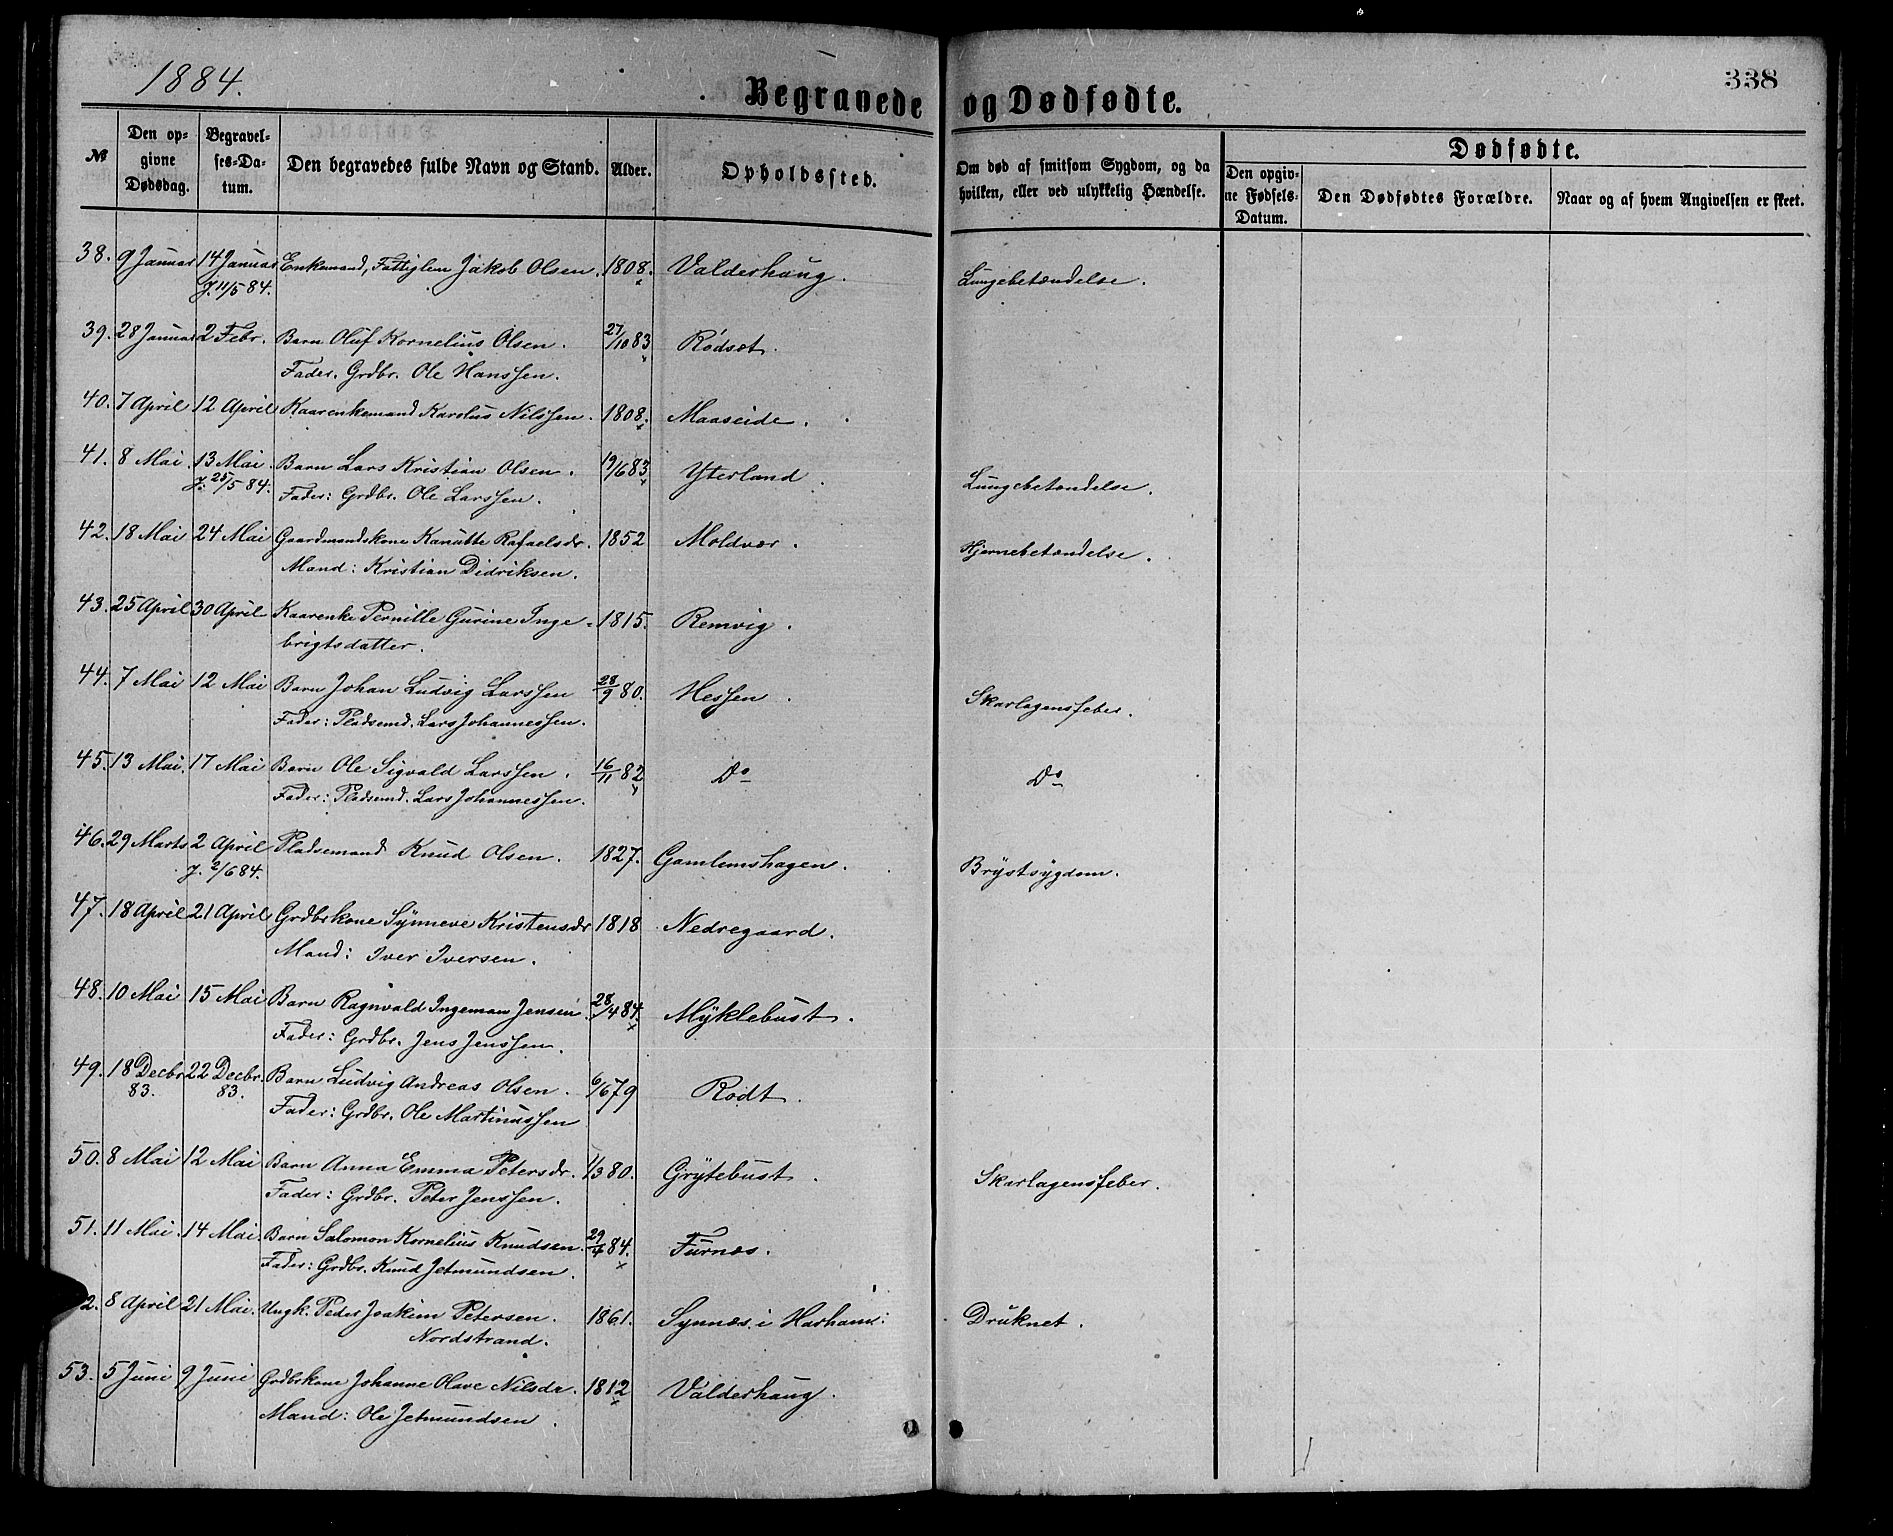 1884.
338
Begravede og Dødfødte.
№
Den op=
givne
Dødsdag.
Begravel=
ses=Da=
tum.
Den begravedes fulde Navn og Stand.
Alder.
Opholdssted.
Om død af smitsom Sygdom, og da
hvilken, eller ved ulykkelig Hændelse.
Dødfødte.
Den opgiv=
ne Fødsels=
Datum.
Den Dødfødtes Forældre.
Naar og af hvem Angivelsen er skeet.
38. 9 Januar 14 Januar Enkemand, Fattiglem Jakob Olsen. 1808. Valderhaug. Lungebetændelse.
J. 11/5 84.
39. 28 Januar 2 Febr. Barn Oluf Kornelius Olsen. 27/10 83 Rødset.
Fader. Grdbr. Ole Hanssen.
40. 7 April 12 April Kaarenkemand Karolus Nilssen. 1808. Maaseide.
41. 8 Mai 13 Mai. Barn Lars Kristian Olsen. 19/6 83 Yterland Lungebetændelse.
J. 25/5 84. Fader: Grdbr. Ole Larssen.
42. 18 Mai 24 Mai Gaardmandskone Kanutte Rafaelsdr. 1852 Moldvær. Hjernebetændelse.
Mand: Kristian Didriksen.
43. 25 April 30 April Kaarenke Pernille Gurine Inge- 1815. Remvig.
brigtsdatter.
44. 7 Mai 12 Mai Barn Johan Ludvig Larssen 28/9 80. Hessen. Skarlagensfeber.
Fader: Pladsemd. Lars Johannessen.
45. 13 Mai. 17 Mai Barn Ole Sigvald Larssen. 16/11 82 Do Do
Fader: Pladsemd. Lars Johannessen.
46. 29 Marts 2 April Pladsemand Knud Olsen. 1827. Gamlemshagen. Brystsygdom.
J. 2/6 84.
47. 18 April 21 April Grdbrkone Synneve Kristensdr 1818 Nedregaard.
Mand: Iver Iversen.
48. 10 Mai 15 Mai Barn Ragnvald Ingeman Jensen 28/4 84. Myklebust.
Fader: Grdbr. Jens Jenssen.
49. 18 Decbr 22 Decbr. Barn Ludvig Andreas Olsen. 6/6 79 Rødt.
83. 83. Fader: Grdbr. Ole Martinussen
50. 8 Mai 12 Mai Barn Anna Emma Petersdr. 1/3 80. Grytebust. Skarlagensfeber.
Fader: Grdbr. Peter Jenssen.
51. 11 Mai. 14 Mai. Barn Salomon Kornelius Knudsen. 29/4 84. Furnæs.
Fader: Grdbr. Knud Jetmundsen.
2. 8 April 21 Mai. Ungk. Peder Joakim Petersen. 1861. Synnæs i Harham: Druknet.
Nordstrand.
53. 5 Juni 9 Juni Grdbrkone Johanne Olave Nilsdr. 1812 Valderhaug.
Mand: Ole Jetmundsen.